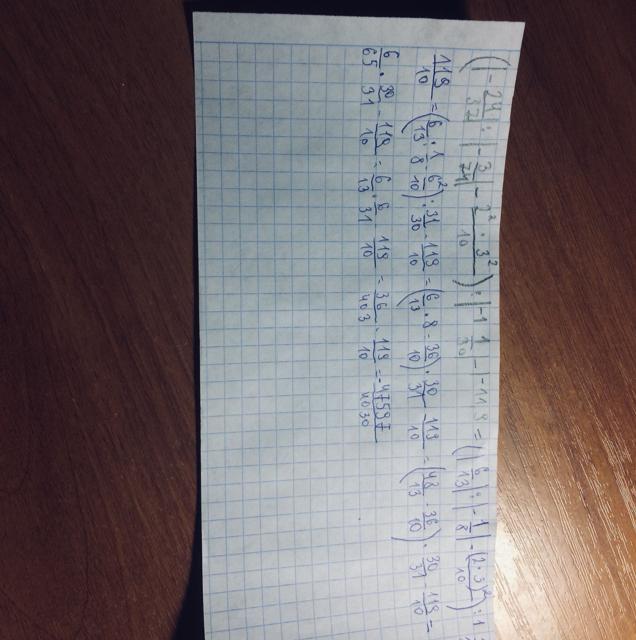 (|-24/52| : |-3/24| - 2² · 3²/10) : |-1 1/30| - |-11,9| = (|6/13| : |-1/8| - (2·3)²/10) : 1
119/10 = (6/13 : 1/8 - 6²/10) : 31/30 - 119/10 = (6/13 · 8 - 36/10) · 30/31 - 119/10 = (48/13 - 36/10) · 30/31 - 119/10 =
6/65 · 30/31 - 119/10 = 6/13 · 6/31 - 119/10 = 36/403 - 119/10 = -47597/4030